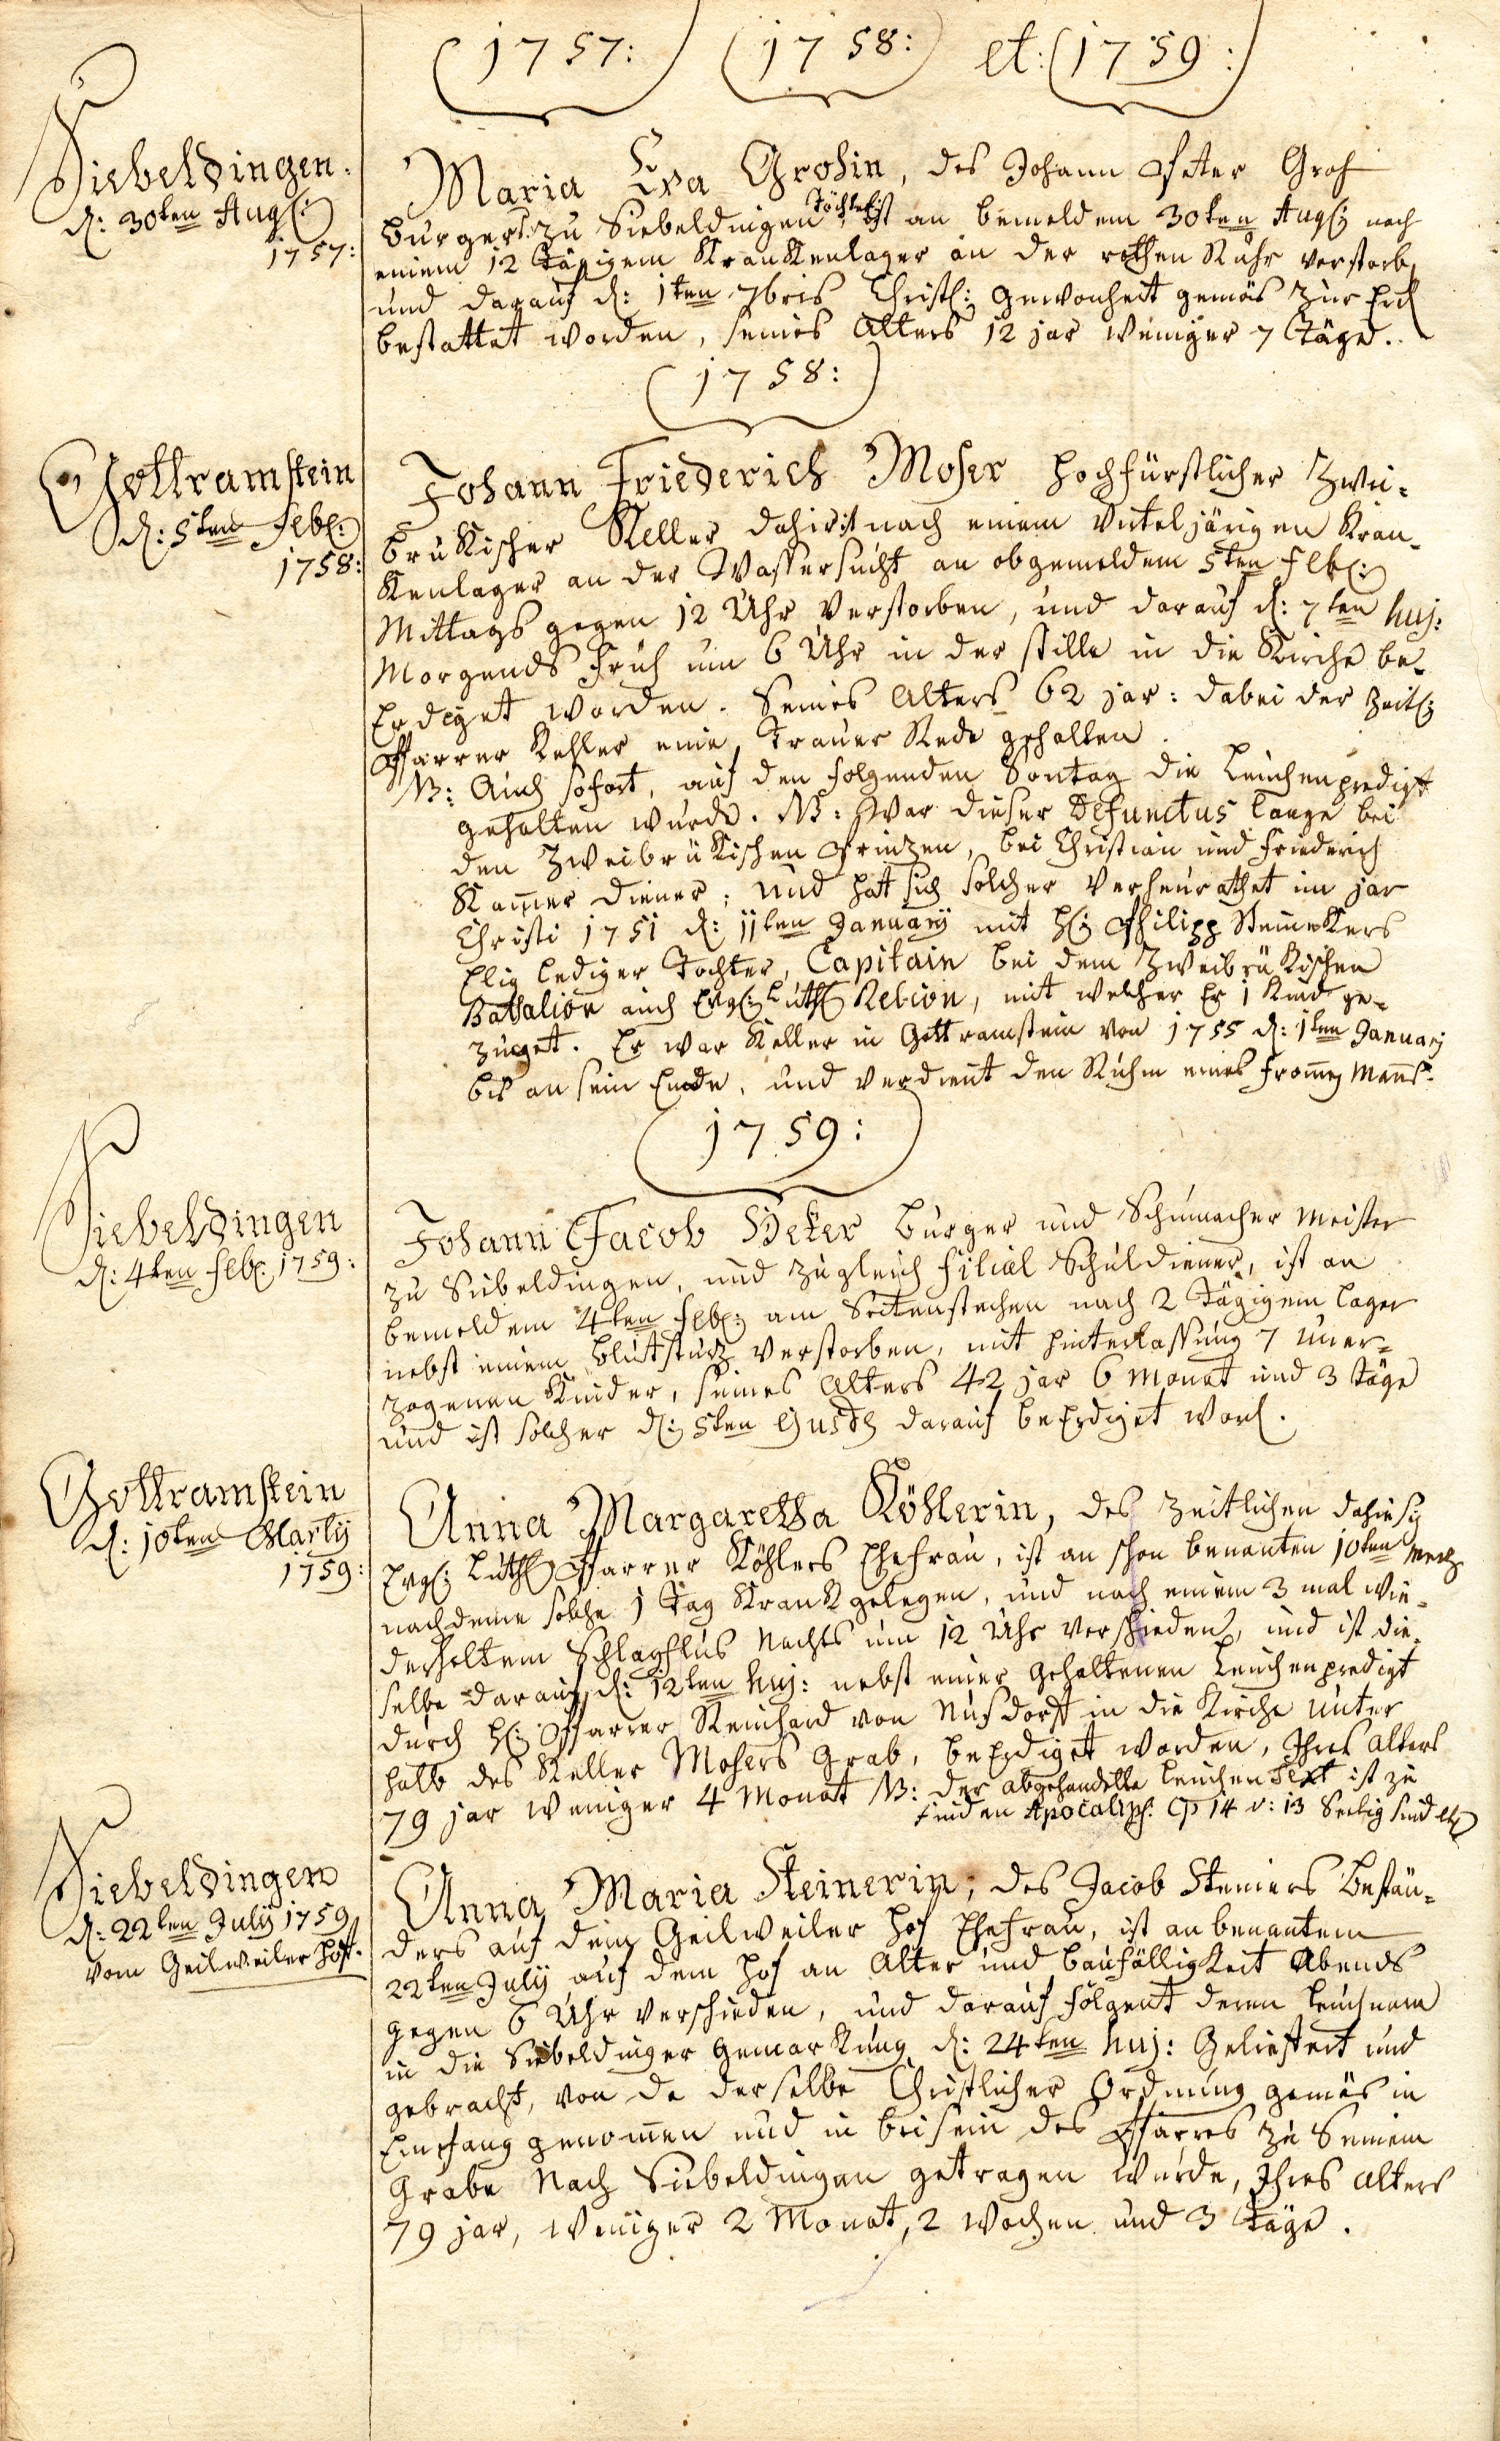 1757: 1758: et: 1759:
Siebeldingen.
d: 30ten Aug:
1757:
Maria Eva Grohin, des Johann Peter Groh
burgers zu Siebeldingen Töchterl: ist an bemeldem 30ten Aug: nach
einem 12 tägigem Krankenlager an der rothen Ruhr verstorb
und darauf d: 1ten 7bris Christl: gewonheit gemäs zur Erd
bestattet worden, seines Alters 12 jar weniger 7 Täge.
1758:
Gottramstein
d: 5ten Feb:
1758:
Johann Friederich Moser Hochfürstlicher Zwei-
brükischer Keller dahir ist nach einem Virteljärigen Kran-
kenlager an der Wassersucht an obgemeldem 5ten Feb:
Mittags gegen 12 Uhr verstorben, und darauf d: 7ten huj:
Morgends früh um 6 Uhr in der stille in die Kirche be-
Erdiget worden. Seines Alters 62 jar: dabei der Zeitl:
Pfarrer Kehler eine Trauer Rede gehalten.
NB: Auch sofort, auf den folgenden Sontag die Leichenpredigt
gehalten wurde. NB: War dieser Defunctus lange bei
den Zweibrükischen Prinzen, bei Christian und Friederich
Kam̅er Diener; und hat sich solcher verheurathet im jar
Christi 1751 d: 11ten January mit H: Philipp
Elig lediger Tochter, Capitain bei dem Zweibrükischen
Batalion auch Evg: Luth Relion, mit welcher Er 1 Kind ge-
zuget. Er war Keller in Gottramstein von 1755 d: 1ten January
bis an sein Ende, und verdient den Ruhm eines from̅en Mann̅s.
1759:
Siebeldingen
d: 4ten Feb: 1759:
Johann Jacob Beker Burger und Schumacher Meister
zu Siebeldingen, und zugleich Filial Schuldiener, ist an
bemeldem 4ten Feb: am Seitenstechen nach 2 Tägigem Lager
nebst einem Blutsturz verstorben, mit hinterlassung 7 uner-
zogenen Kinder, seines Alters 42 jar 6 Monat und 3 Täge
und ist solcher d: 5ten darauf beErdiget word.
Gottramstein
d: 10ten Martij
1759:
Anna Margaretha Köhlerin, des zeitlichen dahiesig
Evg: Luth Pfarrer Köhlers Ehefrau, ist an schon benanten 10ten Mertz
nachdeme solche 1 Tag Krank gelegen, und nach einem 3 mal wie-
derholtem Schlagflus Nachts um 12 Uhr verschieden, und ist die-
selbe darauf d: 12ten huj: nebst einer gehaltenen Leichenpredigt
durch H: Pfarrer Reinhard von Nusdorff in die Kirche unter
halb des Keller Mosers Grab, beErdiget worden, Ihres alters
79 jar weniger 4 Monat NB: der abgehandelte Leichen Text ist zu
finden Apocalips. Cp 14 v: 13 Seelig sind etc
Siebeldingen
d: 22ten July 1759
vom Geilweiler hoff.
Anna Maria Steinerin, des Jacob Steiners Bestän-
ders auf dem Geilweiler Hof Ehefrau, ist an benantem
22ten July auf dem Hof an Alter und baufälligkeit Abends
gegen 6 Uhr verschieden, und darauf folgent deren Leichnam
in die Siebeldinger Gemarkung d: 24ten huj: Geliefert und
gebracht, von da derselbe Christlicher Ordnung gemäs in
Empfang genom̅en und in beisein des Pfarres zu Seinem
Grabe Nach Siebeldingen getragen wurde, Ihres alters
79 jar, weniger 2 Monat, 2 Wochen und 3 Täge.